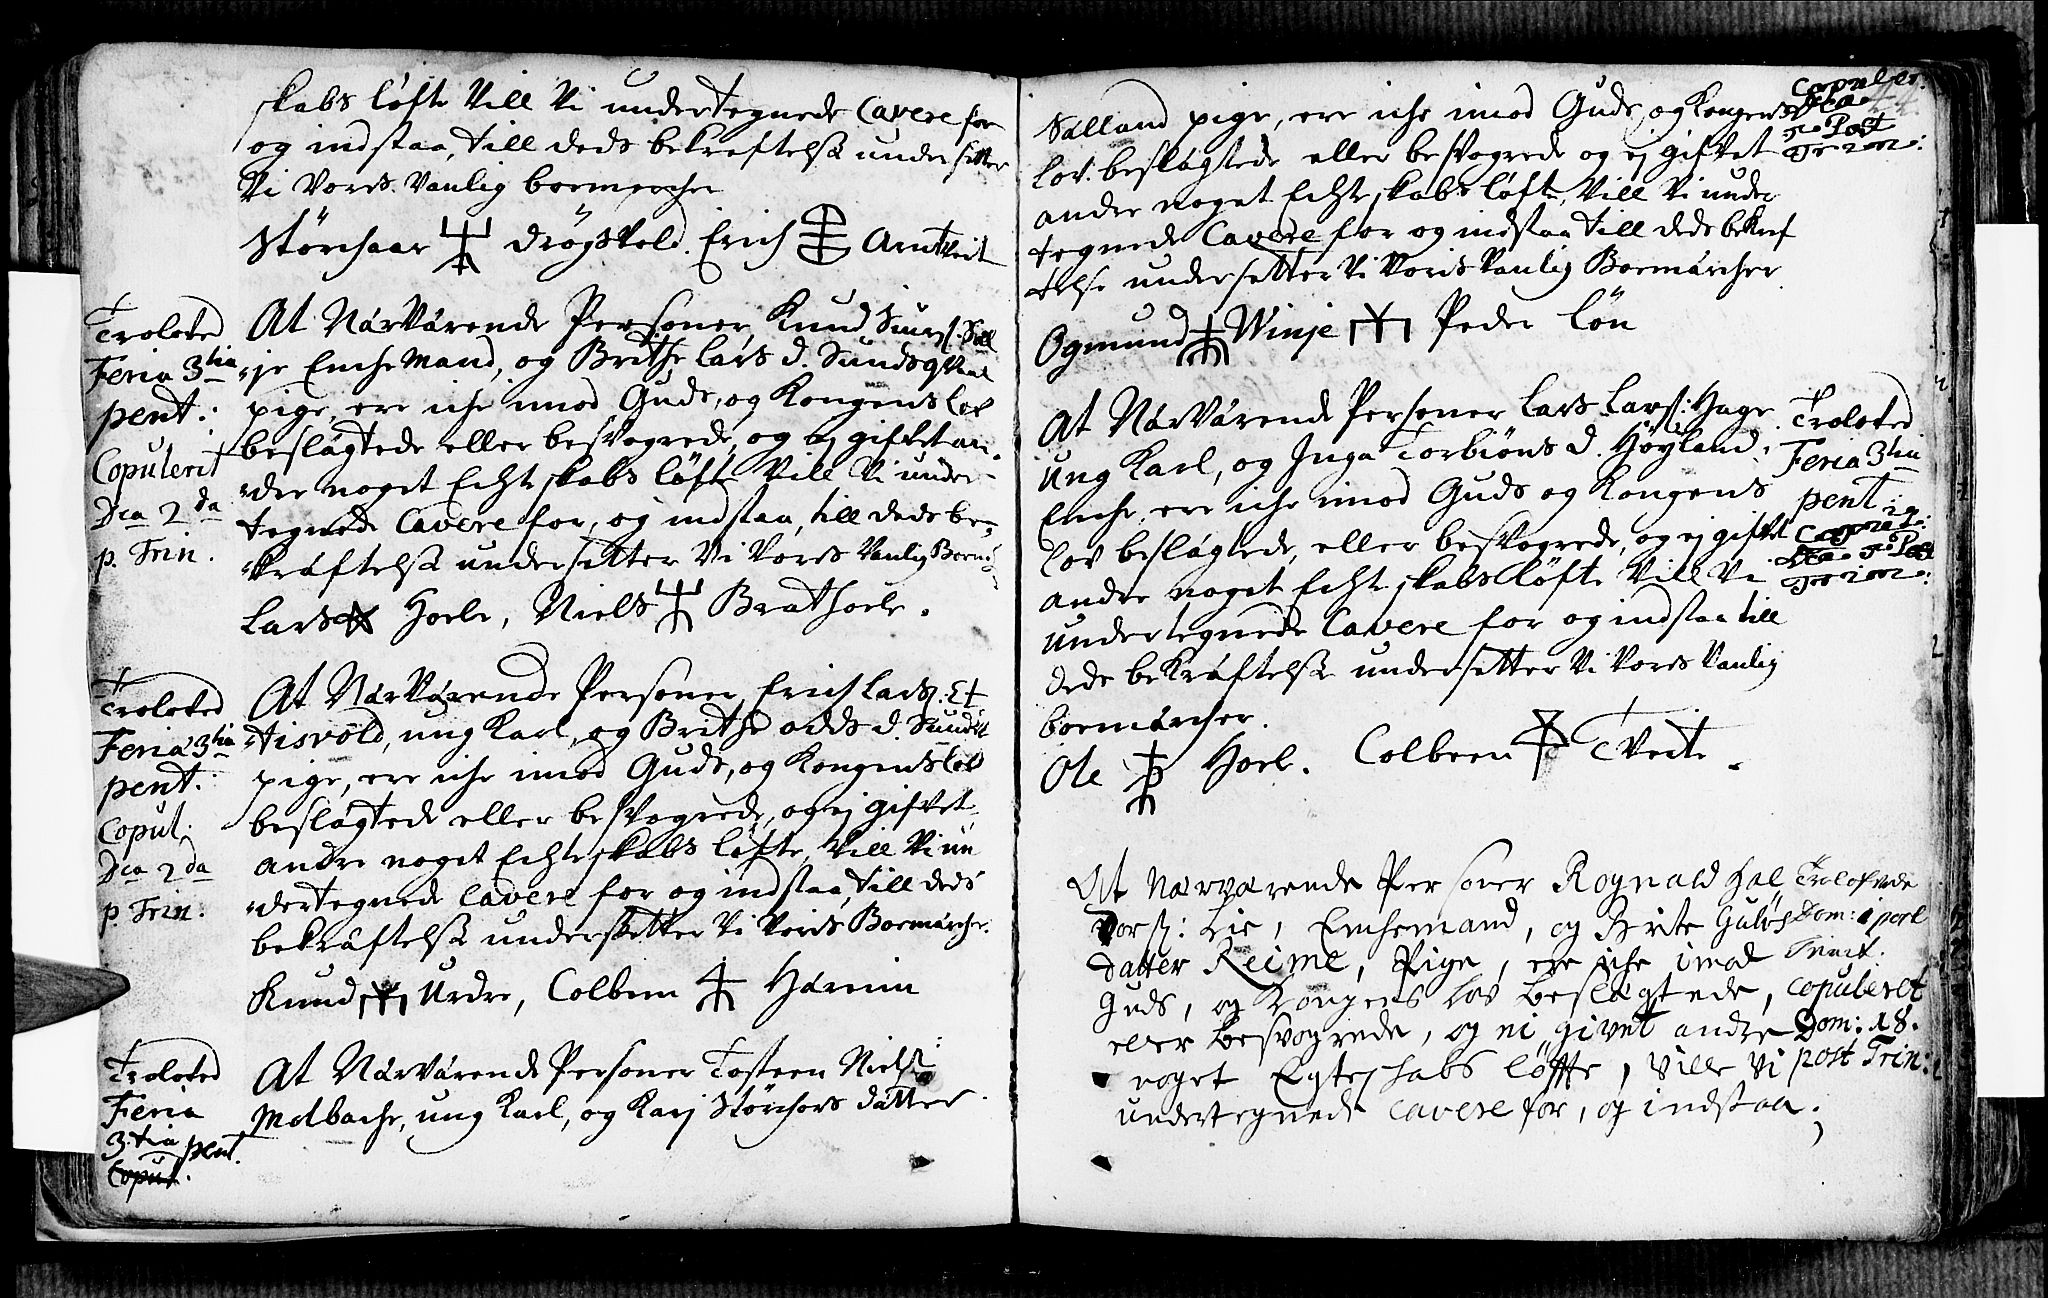 skabs løfte Vill Vi undertegnede Cavere for
og indstaa, till deds bekreftelse under setter
Vi Vores Vanlig boemercher
Störchaar Drögsvold. Erich Arntveit
Troloved
Feria 3tia
pent:
Copulerit
Dca 2da
p. Trin.
At Närvärende Personer Knud Siurs:
je Enche Mand, og Brithe Lars d. Sundsqval
pige, ere iche imod Guds, og Kongens Lov
beslägtede eller besvogrede, og ej gifvet an-
dre noget Echteskabs løfte Vill Vi under-
tegnede Cavere for, og indstaa, till deds be-
kräftelse undersetter Vi Vores Vanlig Boem:
Lars Hoele, Niels Brathoele.
Troloved
Feria 3tia
pent:
Copul:
Dca 2da
p Trin:
At Närvärende Personer Erich Lars: Et
tisvold, ung Karl, og Brithe odds d. Sundst
pige, ere iche imod Guds, og Kongens Lov
beslägtede eller besvogrede, og ej gifvet
andre noget Echteskabs løfte, Vill Vi un
dertegnede Cavere for og indstaa, till deds
bekräftelse undersetter Vi Voris Boemärcher.
Knud Urdre, Colbeen Häreim
Troloved
Feria
3.tia pent.
Copul.
At Närvärende Personer Tosteen Niels:
Molbache, ung Karl, og Karj Störchors datter
Copuler:
Dca
7 Post
Trin:
Salland pige, ere iche imod Guds, og Kongens
Lov. beslägtede eller besvogrede og ej gifvet
andre noget Echteskabs løfte, Vill Vi under
tegnede Cavere for og indstaa till deds bekref
telse undersetter Vi Voris Vanlig Boemärcher
Ogmund Winje Peder Lön
At Närvärende Personer Lars Lars: Hage
ung Karl, og Inga Torbiöns d. Höyland,
Enche, ere iche imod Guds og Kongens
Lov beslägtede, eller besvogrede, og ej gifvet
andre noget Echteskabs løfte Vill Vi
undertegnede Cavere for og indstaa till
deds bekräftelse undersetter Vi Vores Vanlig
boemärcher.
Ole Hoel. Colbeen Tveite.
Troloved
Feria 3tia
pent:
Dca 7 Post
Trin:
At Nærværende Personer Rognald Hal
vors: Lie, Enchemand, og Brite Guløs
datter Reime, Pige, ere iche imod
Guds, og Kongens Lov beslægtede,
eller besvogrede, og ei givet andre
noget Egteskabs løffte, ville vi
undertegnede cavere for, og indstaa;
Trolofvede
Dom: 1 post
Trinit.
copuleret
Dom: 18.
post Trin: